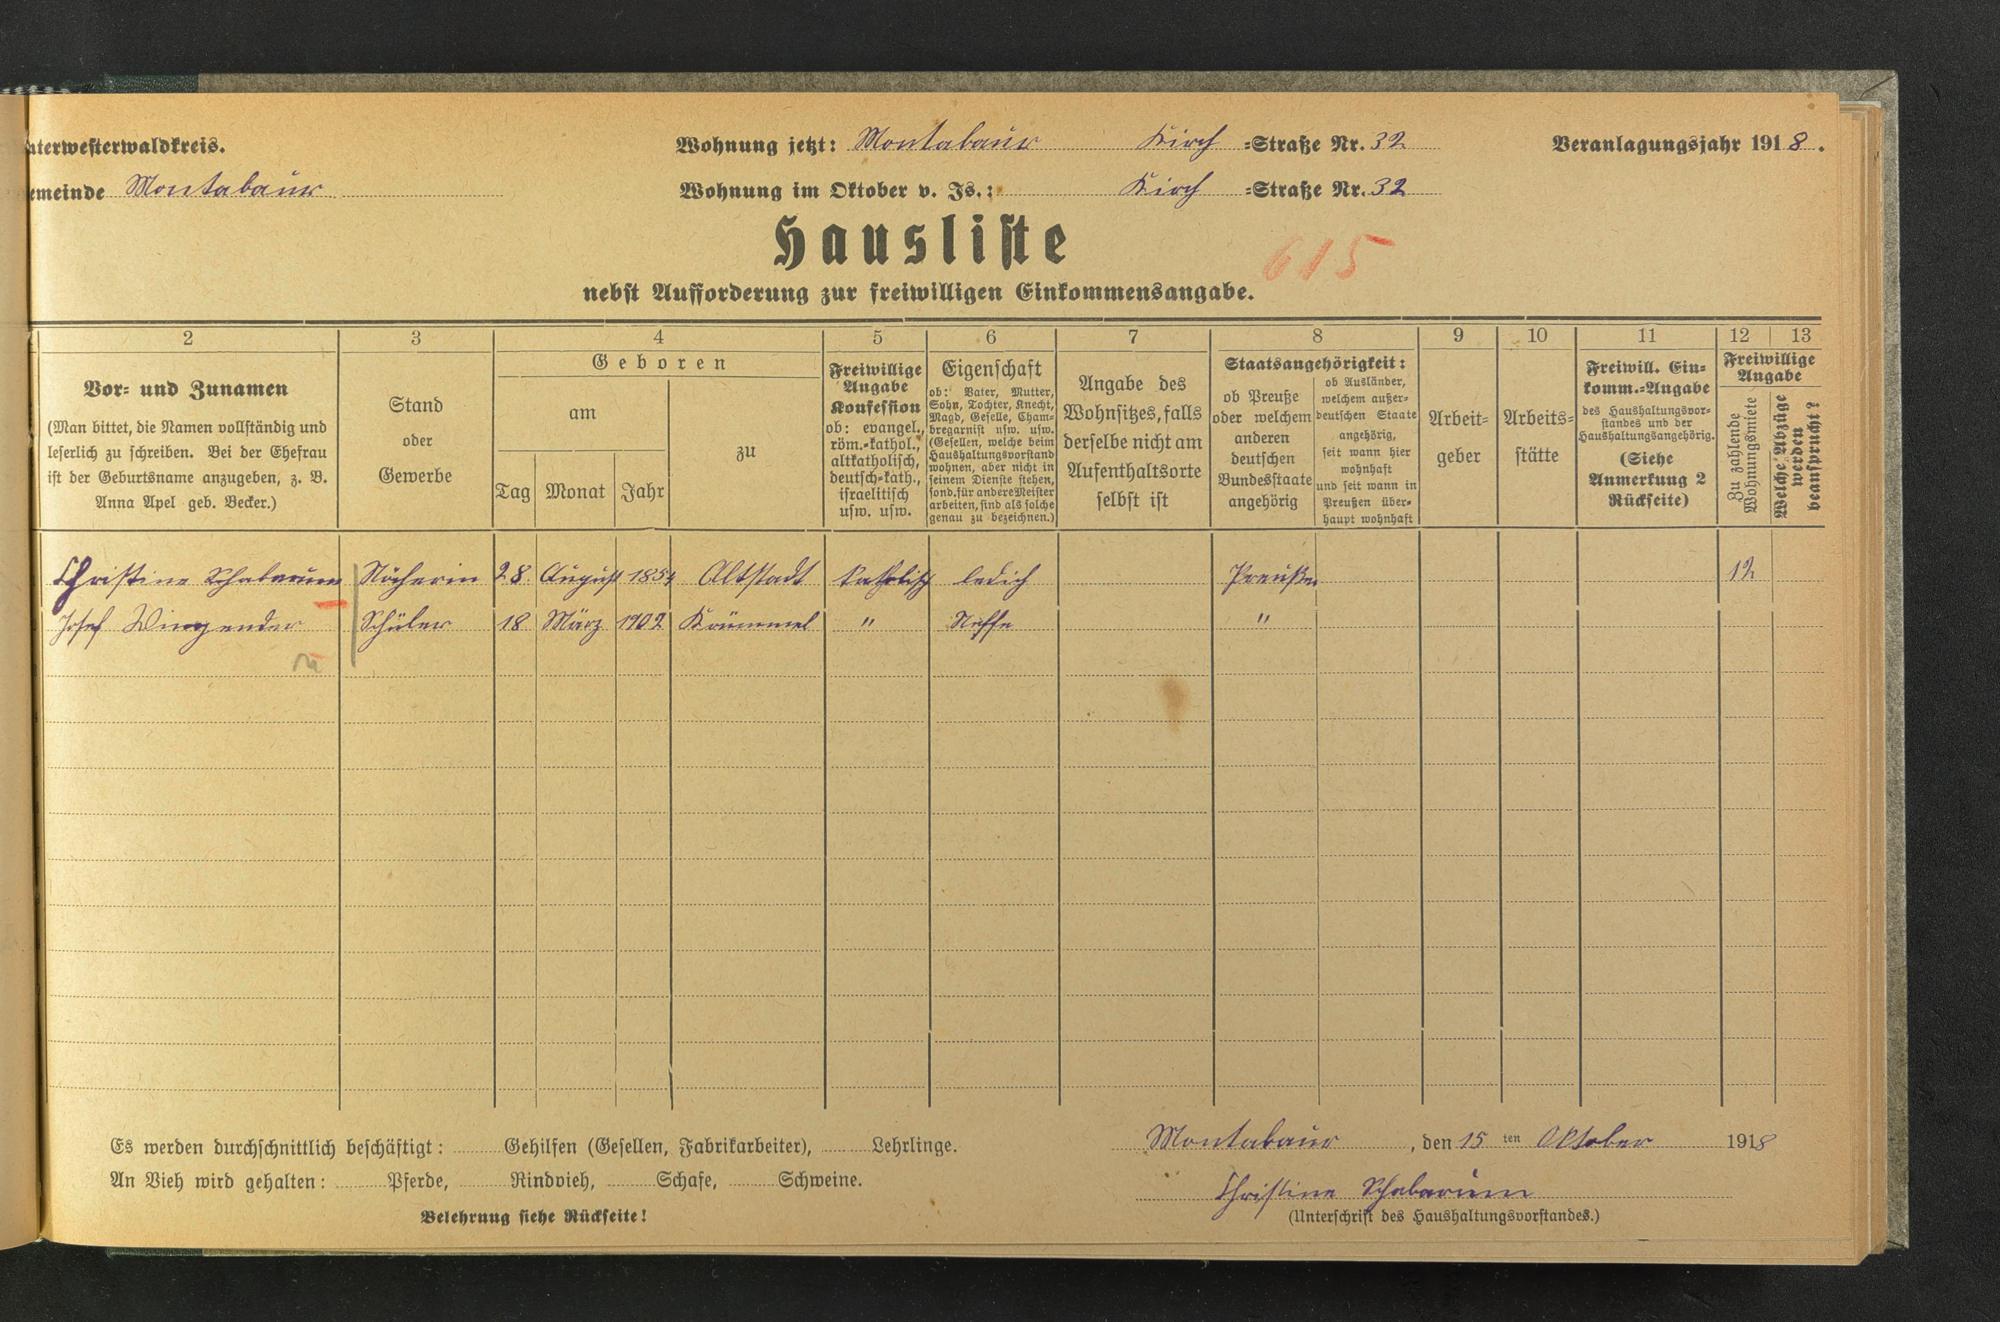 nterwesterwaldkreis.
Wohnung jetzt: Montabaur Kirch =Straße Nr. 32
Veranlagungsjahr 1918.
emeinde Montabaur
Wohnung im Oktober v. Js.: Kirch =Straße Nr. 32
Hausliste
615
nebst Aufforderung zur freiwilligen Einkommensangabe.
2 3 4 5 6 7 8 9 10 11 12 13
Vor- und Zunamen
(Man bittet, die Namen vollständig und
leserlich zu schreiben. Bei der Ehefrau
ist der Geburtsname anzugeben, z. B.
Anna Apel geb. Becker.)
Stand
oder
Gewerbe
Geboren
am
Tag Monat Jahr
zu
Freiwillige
Angabe
Konfession
ob: evangel.,
röm.-kathol.,
altkatholisch,
deutsch-kath.,
israelitisch
usw. usw.
Eigenschaft
ob: Vater, Mutter,
Sohn, Tochter, Knecht,
Magd, Geselle, Cham-
bregarnist usw. usw.
(Gesellen, welche beim
Haushaltungsvorstand
wohnen, aber nicht in
seinem Dienste stehen,
sond. für andere Meister
arbeiten, sind als solche
genau zu bezeichnen.)
Angabe des
Wohnsitzes, falls
derselbe nicht am
Aufenthaltsorte
selbst ist
Staatsangehörigkeit:
ob Preuße
oder welchem
anderen
deutschen
Bundesstaate
angehörig
ob Ausländer,
welchem außer-
deutschen Staate
angehörig,
seit wann hier
wohnhaft
und seit wann in
Preußen über-
haupt wohnhaft
Arbeit-
geber
Arbeits-
stätte
Freiwill. Ein-
komm.-Angabe
des Haushaltungsvor-
standes und der
Haushaltungsangehörig.
(Siehe
Anmerkung 2
Rückseite)
Freiwillige
Angabe
Zu zahlende
Wohnungsmiete
Welche Abzüge
werden
beansprucht?
Christine Schabarum Näherin 28. August 1854 Altstadt katholisch ledich Preußen 12
Josef Wingender Schüler 18 März 1902 Krümmel " Neffe "
Es werden durchschnittlich beschäftigt: Gehilfen (Gesellen, Fabrikarbeiter), Lehrlinge.
Montabaur, den 15 ten Oktober 1918
An Vieh wird gehalten: Pferde, Rindvieh, Schafe, Schweine.
Christine Schabarum
Belehrung siehe Rückseite!
(Unterschrift des Haushaltungsvorstandes.)